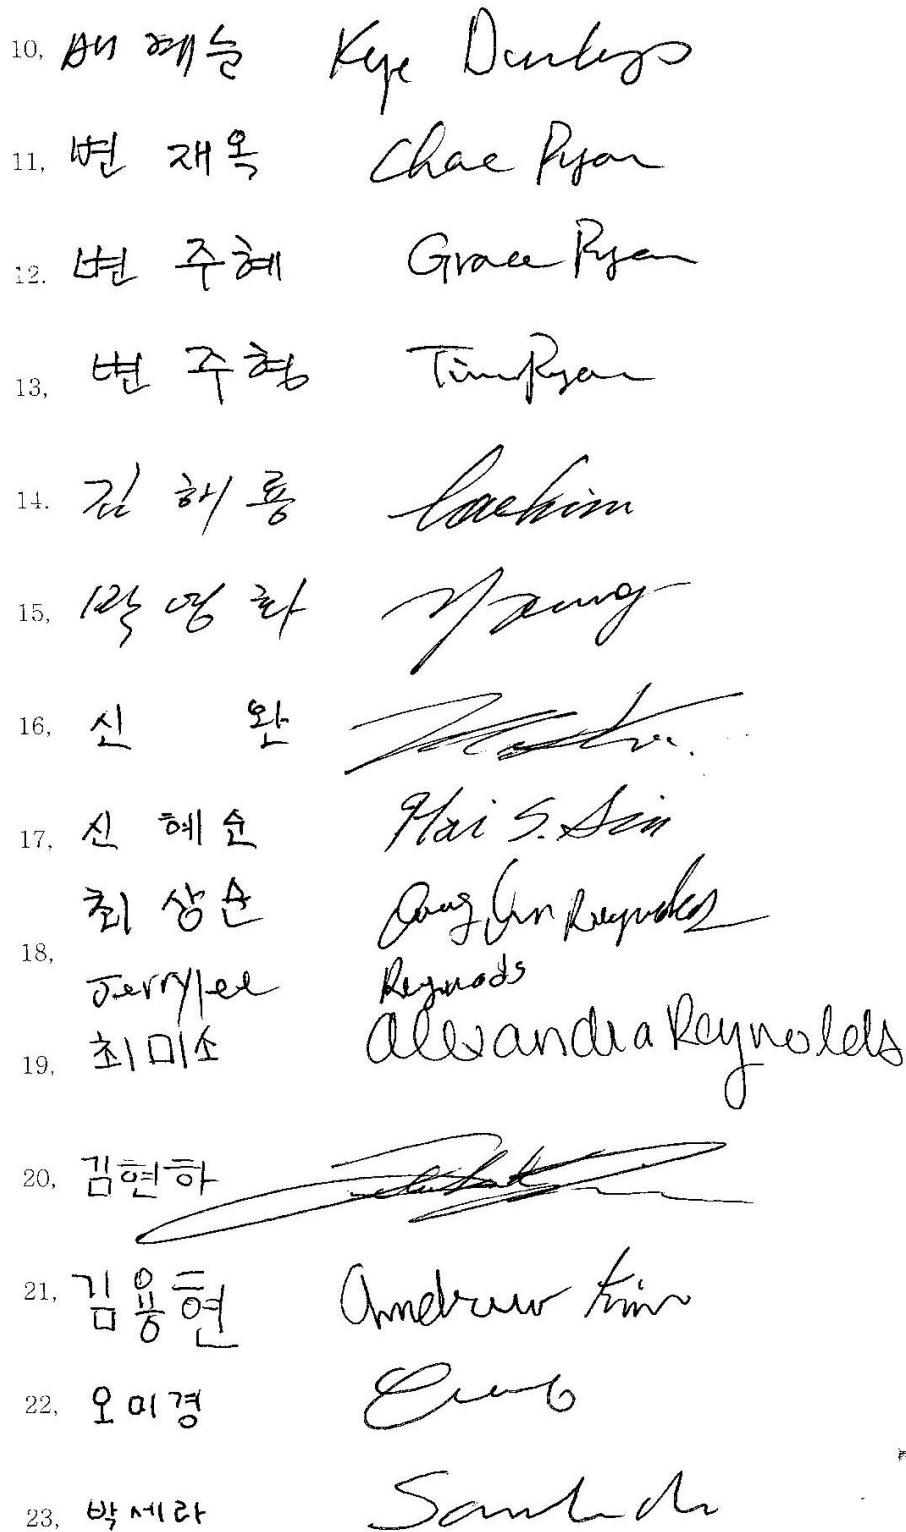 10, 배 예늘 Kye Dunlap
11, 변 재옥 Chae Ryan
12. 변 주혜 Grace Ryan
13, 변 주형 Tim Ryan
14. 김 해룡 Hae Kim
15, 곽 영화 Young
16, 신 완
17, 신 혜순 Hai S. Sin
최 상순 Reynolds
18,
Jerry lee Reynods
19, 최미소 Alexandra Reynolds
20, 김현하
21, 김용현 Andrew Kim
22, 오미경
23, 박세라